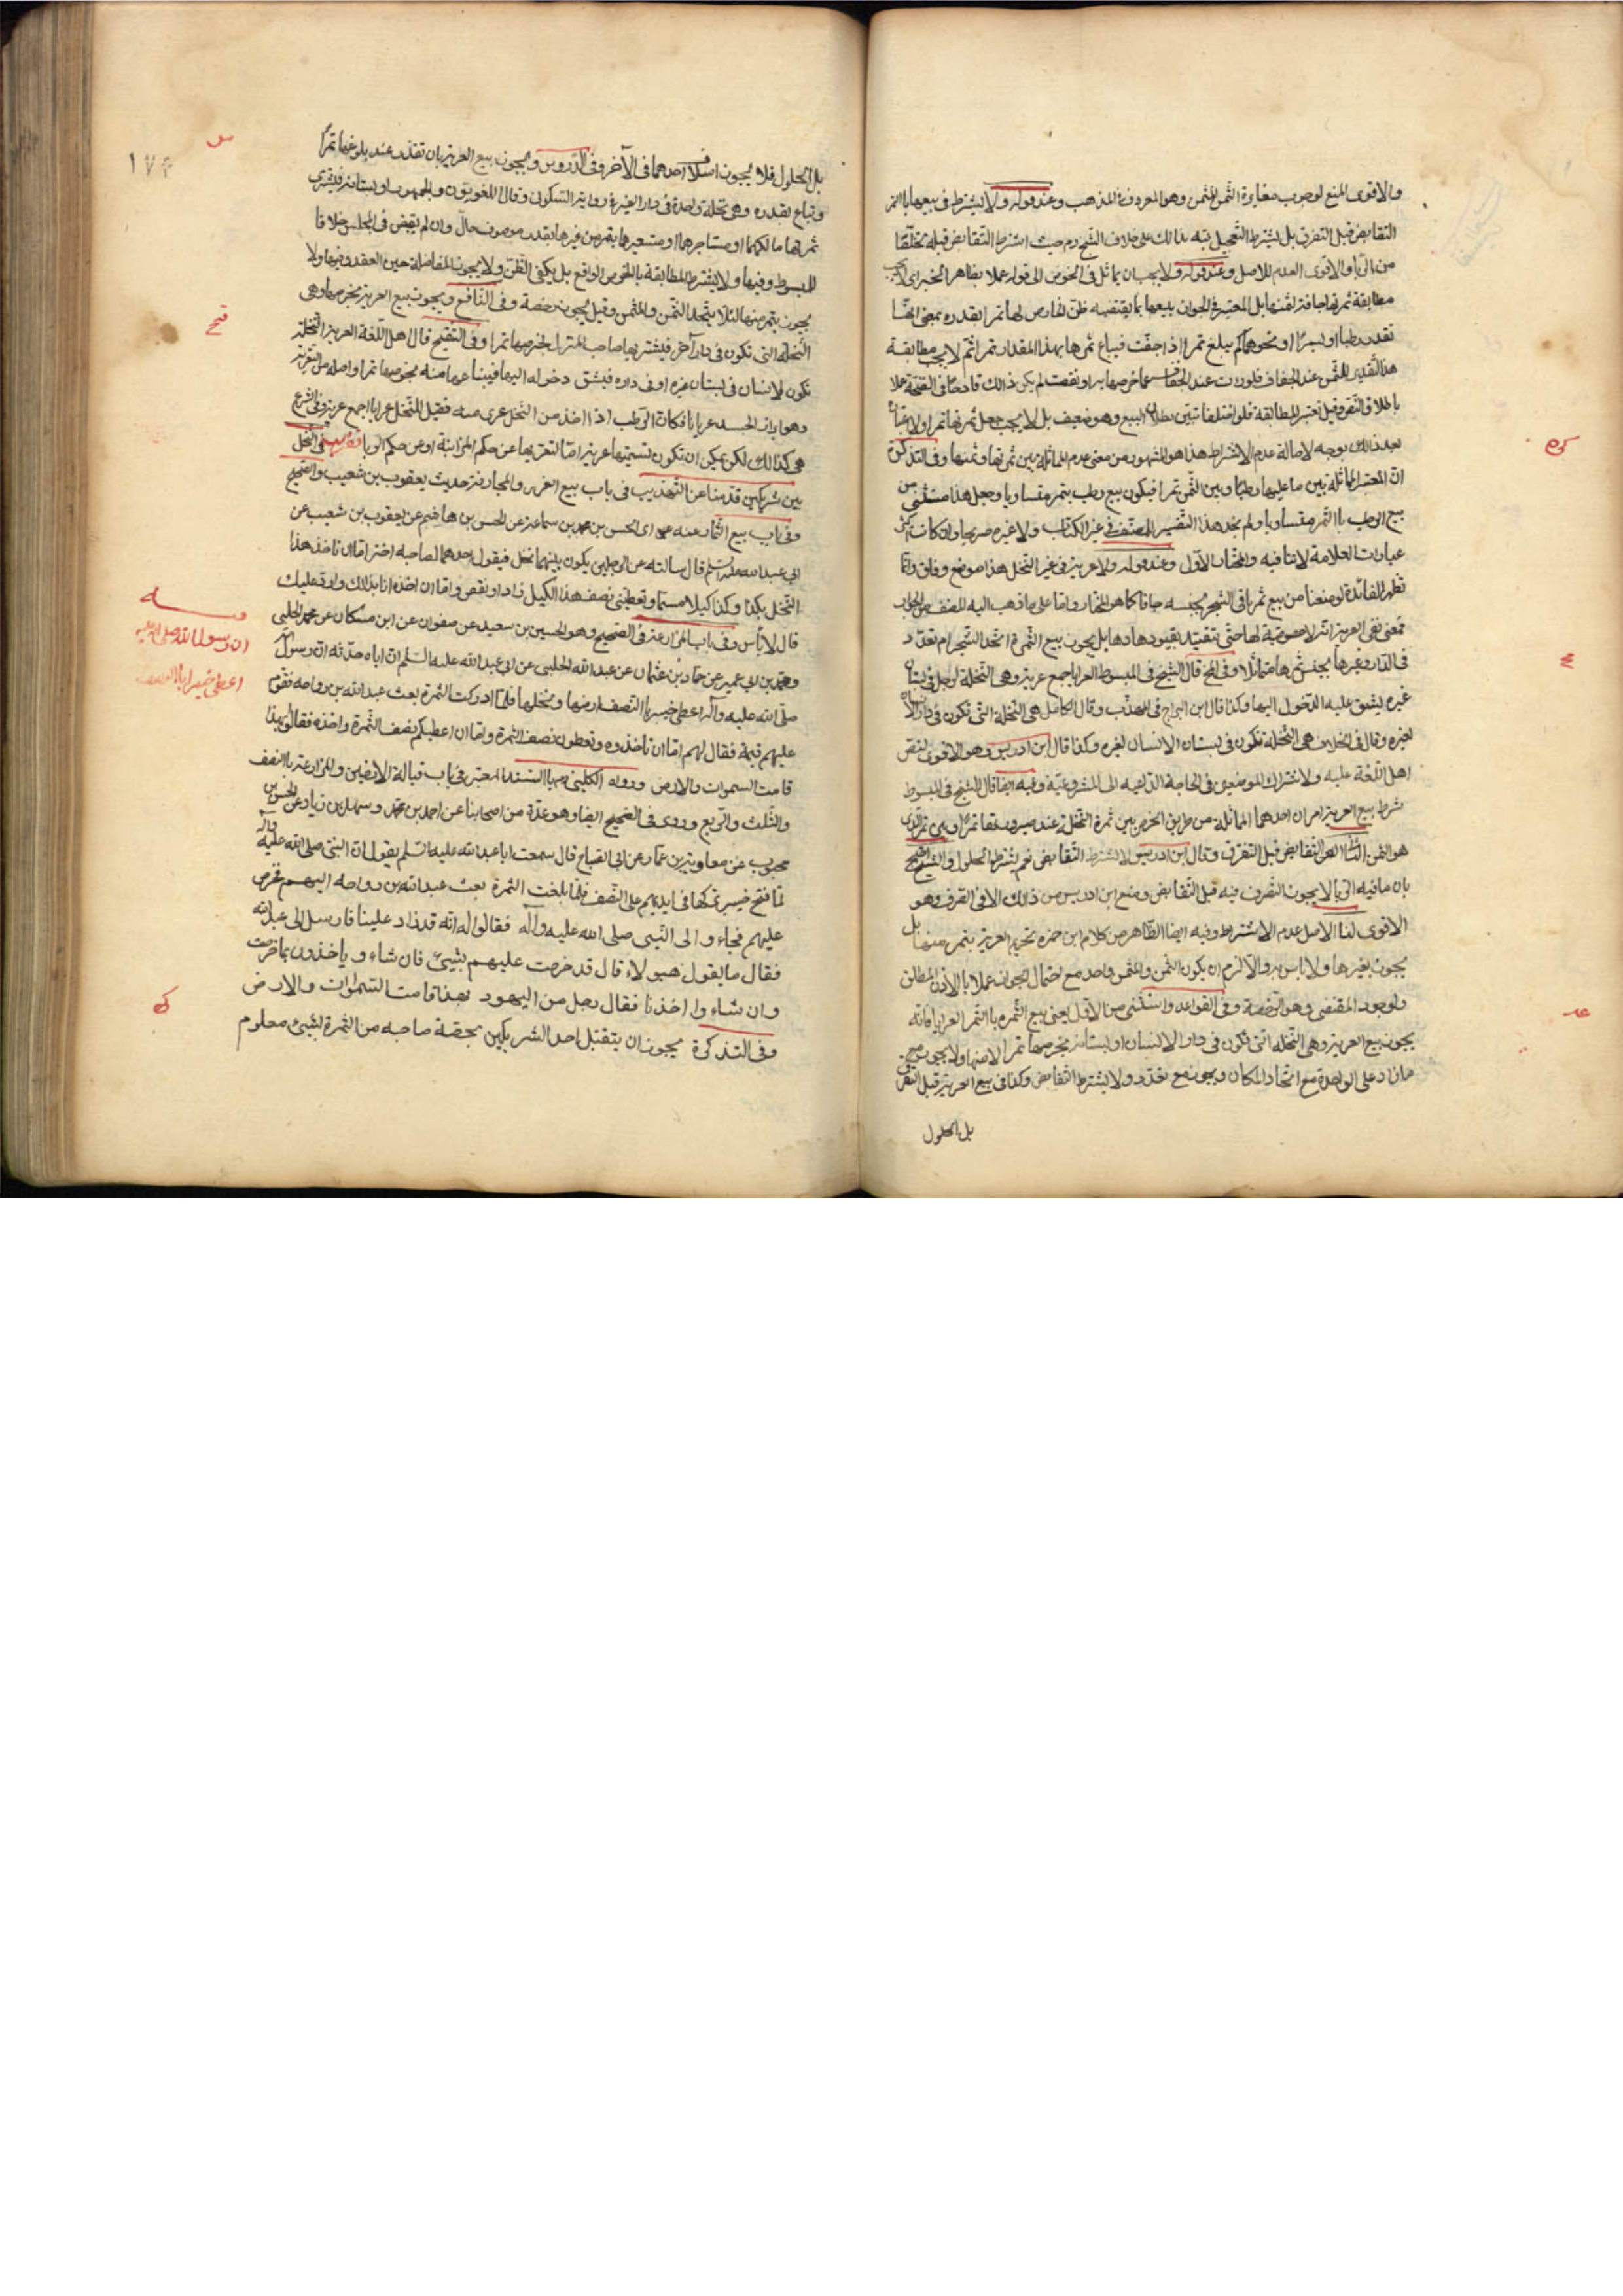 والاقوى المنع لوجوب مغايرة الثمن للمثمن وهو المعروف في المذهب وعند قوله ولا يشترط في بيعها بالتمر
التقابض قبل التفرق بل يشترط التعجيل نبه بذالك على خلاف الشيخ ره حيث اشترط التقابض قبله تخلصا
من الربا والاقوى العدم للاصل وعند قوله ولا يجب ان يماثل في الخرص الى قوله عملا بظاهر الخبر اى لا يجب
مطابقة ثمرتها جافة لثمنها بل المعتبر في الجواز بيعها بما يقتضيه ظن الخارص لها تمرا بقدره بمعنى انها
تقدر رطبا او بسرا او نحوهما كم يبلغ تمرا اذا جفت فيباع ثمرها بهذا المقدار تمرا ثم لا يجب مطابقة
هذا التقدير للثمن عند الجفاف فلو زادت عند الجفاف عما خرصها به او نقصت لم يكن ذالك قادحا في الصحة عملا
باطلاق النص وقيل تعتبر المطابقة فلو اختلفا تبين بطلان البيع وهو ضعيف بل لا يجب جعل ثمرتها تمرا ولا اعتباره
بعد ذالك بوجه لاصالة عدم الاشتراط هذا هو المشهور من معنى عدم المماثلة بين ثمرتها وثمنها وفي التذكرة
ان المعتبر المماثلة بين ما عليها رطبا وبين الثمن تمرا فيكون بيع رطب بتمر متساويا وجعل هذا مستثنى من
بيع الرطب بالتمر متساويا ولم نجد هذا التفسير للمصنف في غير الكتاب ولا غيره صريحا وان كانت اكثر
عبارات العلامة لا تنافيه والمختار الاول وعند قوله ولا عرية في غير النخل هذا موضع وفاق وانما
تظهر الفائدة لو منعنا من بيع ثمر باقي الشجر بجنسه جافا كما هو المختار واما على ما ذهب اليه المصنف من الجواز
فمعنى نفى العرية انه لا خصوصية لها حتى تتقيد بقيودها دها بل يجوز بيع الثمرة اتحد الشجر ام تعدد
في الدار وغيرها بجنسها متماثلا وفي المخ قال الشيخ في المبسوط العرايا جمع عرية وهي النخلة لرجل في بستان
غيره يشق عليه الدخول اليها وكذا قال ابن البراج في المهذب وقال الكامل هي النخلة التي تكون في دار الانسان
لغيره وقال في الخلاف هي النخلة تكون في بستان الانسان لغيره وكذا قال ابن ادريس وهو الاقوى لنص
اهل اللغة عليه ولاشتراك الموضعين في الحاجة الداعيه الى المشروعية وفيه ايضا قال الشيخ في المبسوط
شرط بيع العرية امران احدهما المماثلة من طريق الخرص بين ثمرة النخلة عند صيرورتها تمرا وبين تمر الذى
هو الثمن الثاني التقابض قبل التفرق وقال ابن ادريس لا يشترط التقابض نعم يشترط الحلول والشيخ احتج
بان ما فيه الربا لا يجوز التفرق فيه قبل التقابض ومنع ابن ادريس من ذالك الا في الصرف وهو
الاقوى لنا الاصل عدم الاشتراط وفيه ايضا الظاهر من كلام ابن حمزه تحريم العرية بتمر منها بل
يجوز بغيرها ولا باس به والا لزم ان يكون الثمن والمثمن واحد مع احتمال الجواز عملا بالاذن المطلق
ولوجود المقتضى وهو الرخصة وفي القواعد واستثنى من الاول يعنى بيع الثمرة بالتمر العرايا فانه
يجوز بيع العرية وهي النخلة التي تكون في دار الانسان او بستانه بخرصها تمرا لا منها ولا يجوز
ما زاد على الواحدة مع اتحاد المكان ويجوز مع تعدده ولا يشترط التقابض وكذا في بيع العرية قبل التفرق
بل الحلول
١٧٢
بل الحلول فلا يجوز اسلاف احدهما في الآخر وفي الدروس ويجوز بيع العرية بان تقدر عند بلوغها تمرا
وتباع بقدره وهي نخلة واحدة في دار الغير في رواية السكوني وقال اللغويون والجمهور او بستانه فيشترى
ثمرتها مالكهما او مستاجرهما او مستعيرها بتمر من غيرها بقدر موصوف حال وان لم يقبض في المجلس خلافا
للمبسوط وفيها ولا يشترط المطابقة بالخرص الواقع بل يكفى الظن ولا يجوز المفاضلة حين العقد وفيها ولا
يجوز بتمر منها لئلا يتحد الثمن والمثمن وقيل يجوز رخصة وفي النافع ويجوز بيع العرية بخرصها وهي
النخلة التي تكون في دار آخر فيشتريها صاحب المنزل بخرصها تمرا وفي التنقيح قال اهل اللغة العرية النخلة
تكون لانسان في بستان غيره او في داره فيشق دخوله اليها فيبتاعها منه بخرصها تمرا واصله من التعرية
وهو براز الجسد عريانا فكان الرطب اذا اخذ من النخل عرى منه فقيل للنخل عرايا جمع عرية وفي الشرع
هي كذالك لكن يمكن ان تكون تسميتها عرية اما لتعريها عن حكم المزابنة او عن حكم الربا النخل
بين شريكين قدمنا عن التهذيب في باب بيع الغرر والمجازفة حديث يعقوب بن شعيب والصحيح
وفي باب بيع الثمار عنه اى الحسن بن محمد بن سماعة عن الحسن بن هاشم عن يعقوب بن شعيب عن
ابي عبد الله عليه السلم قال سالته عن الرجلين يكون بينهما نخل فيقول احدهما لصاحبه اختر اما ان تاخذ هذا
النخل بكذا وكذا كيلا مسمى وتعطيني نصف هذا الكيل زاد او نقص واما ان اخذه انا بذالك وارد عليك
قال لا بأس وفي باب المزارعة في الصحيح وهو الحسين بن سعيد عن صفوان عن ابن مسكان عن محمد الحلبي
ومحمد بن ابي عمير عن حماد بن عثمان عن عبد الله الحلبي عن ابي عبد الله عليه السلم ان اباه حدثه ان رسول الله
صلى الله عليه وآله اعطى خيبر بالنصف ارضها ونخلها فلما ادركت الثمرة بعث عبد الله بن رواحه فقوم
عليهم قيمة فقال لهم اما ان تاخذوه وتعطون نصف الثمرة واما ان اعطيكم نصف الثمرة واخذه فقالوا بهذا
قامت السموات والارض ورواه الكليني بالسند المعتبر في باب قبالة الارضين والمزارعة بالنصف
والثلث والربع وروى في الصحيح ايضا وهو عدة من اصحابنا عن احمد بن محمد وسهل بن زياد عن الحسن بن
محبوب عن معاوية بن عمار عن ابي الصباح قال سمعت ابا عبد الله عليه السلم يقول ان النبي صلى الله عليه وآله
لما فتح خيبر تركها في ايديهم على النصف فلما بلغت الثمرة بعث عبد الله بن رواحه اليهم فخرص
عليهم فجاءوا الى النبي صلى الله عليه وآله فقالوا له انه قد زاد علينا فارسل الى عبد الله
فقال ما يقول هؤلاء قال قد خرصت عليهم بشيئ فان شاءوا ياخذون بما خرصت
وان شاءوا اخذنا فقال رجل من اليهود بهذا قامت السموات والارض
وفي التذكرة يجوز ان يتقبل احد الشريكين بحصة صاحبه من الثمرة لشيئ معلوم
ان رسول الله صلى الله عليه
اعطى خيبر بالنصف